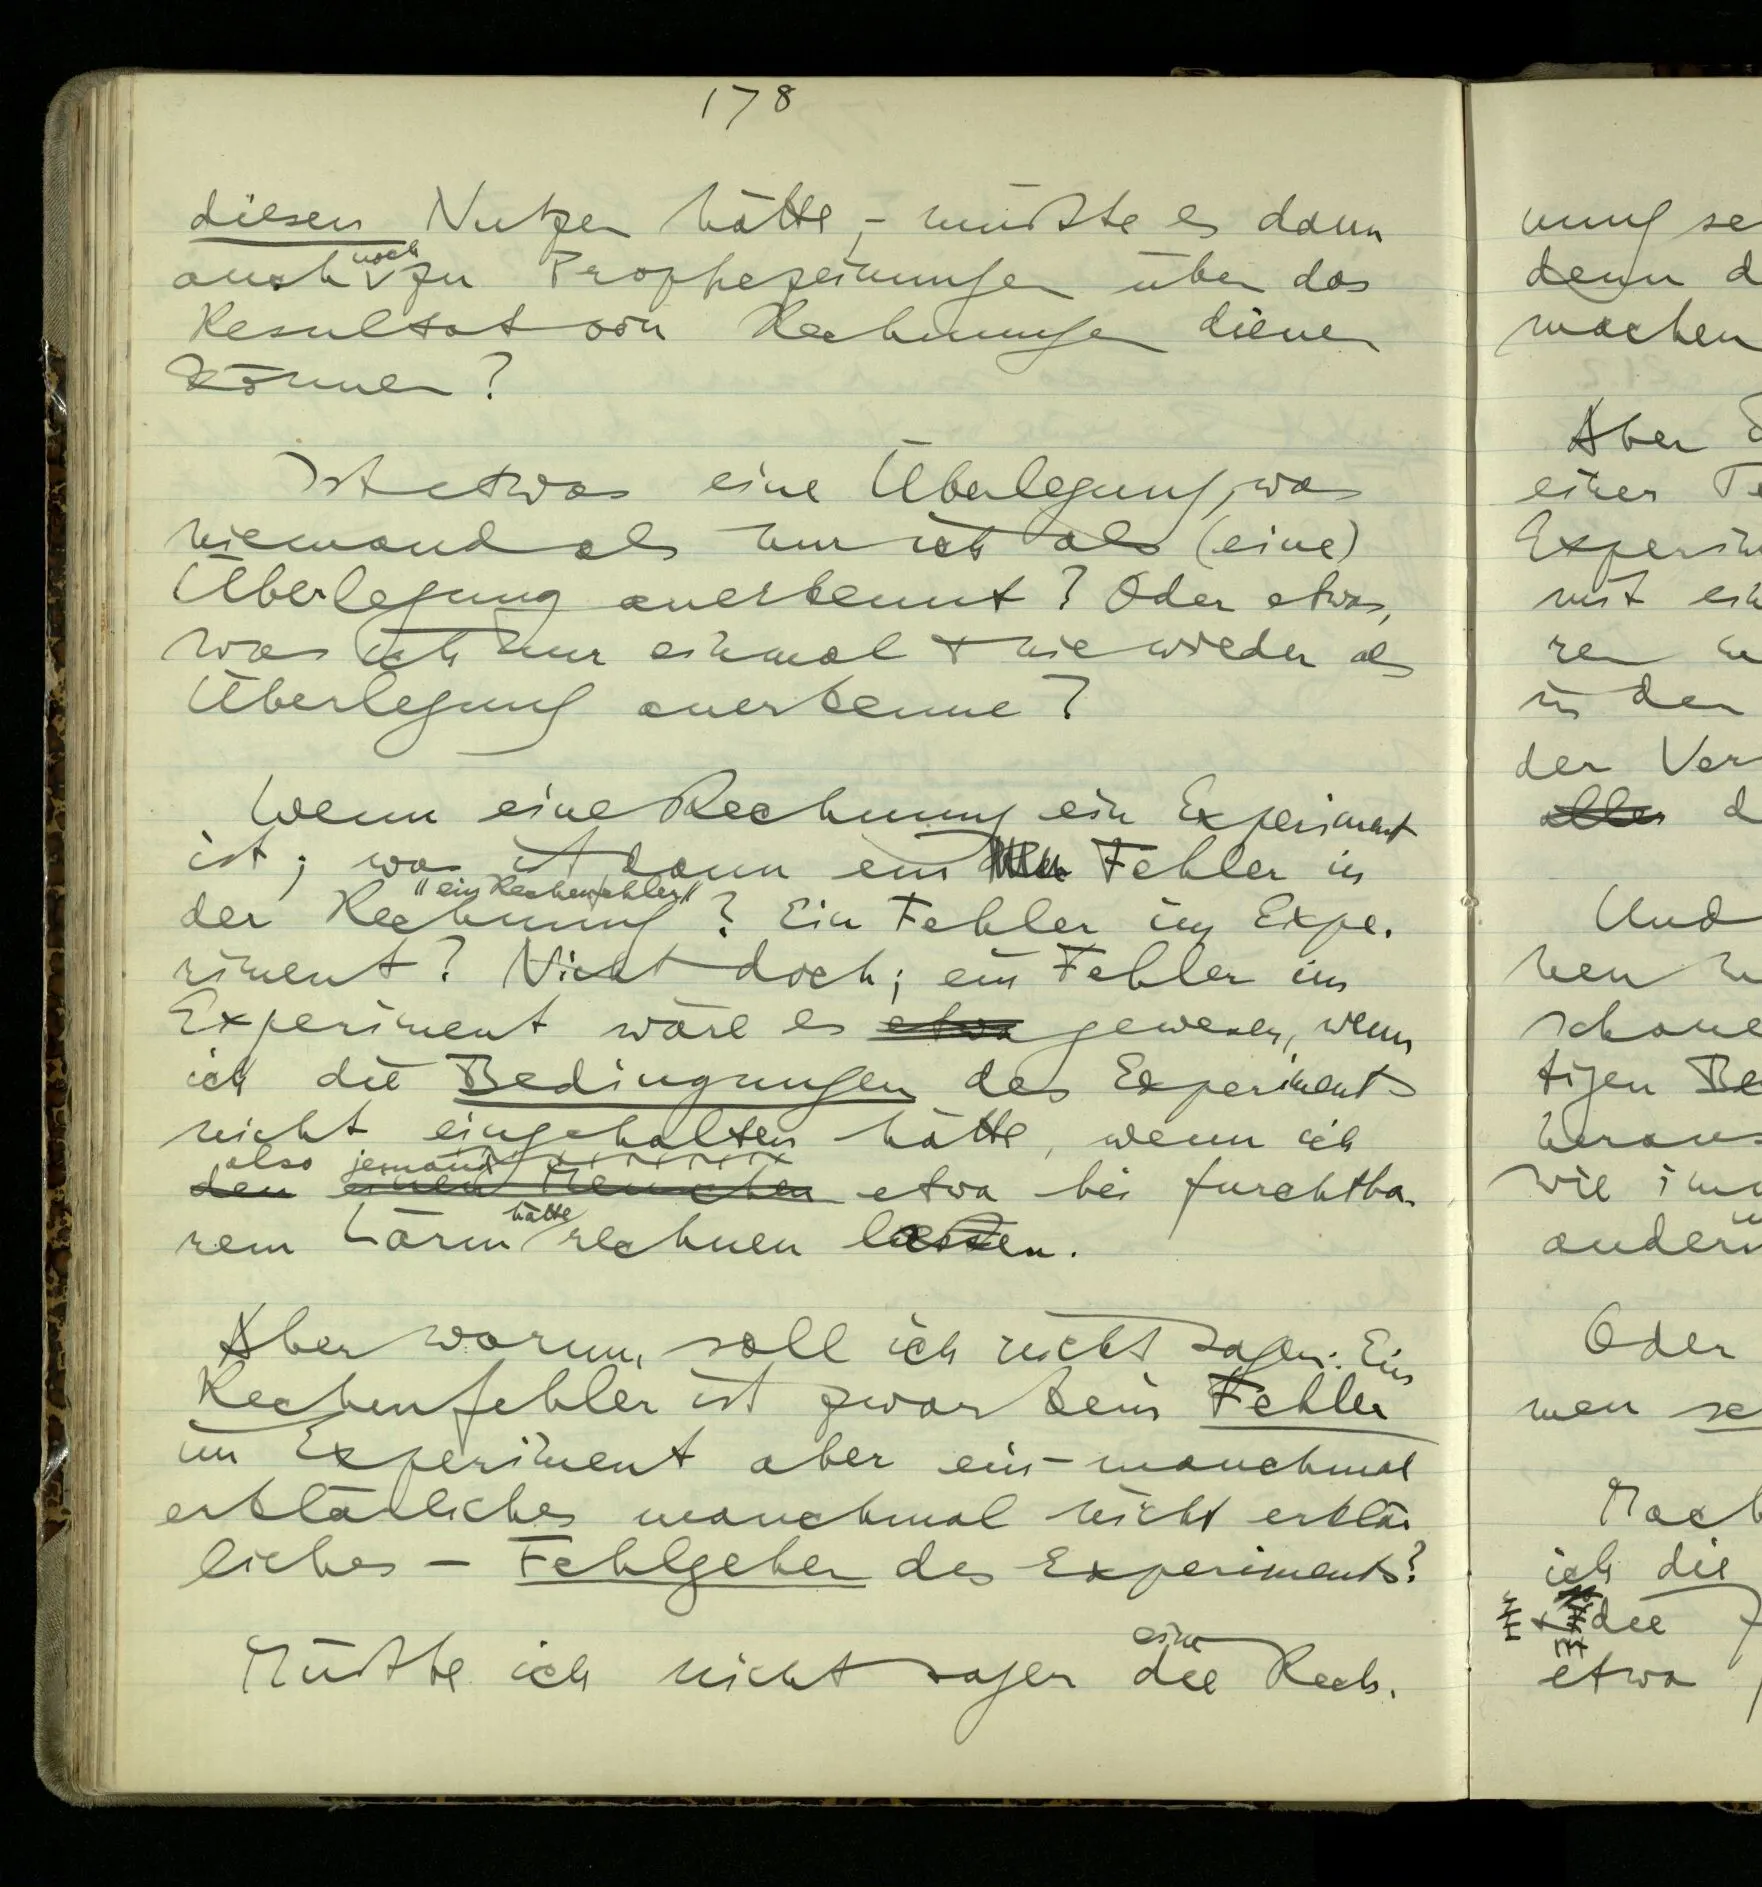 178
diesen Nutzen hätte, – müßte es dann
auch noch zu Prophezeiungen über das
Resultat von Rechnungen dienen
können?
Ist etwas eine Überlegung, was
niemand als nur ich als (eine)
Überlegung anerkennt? Oder etwas,
was ich nur einmal + nie wieder als
Überlegung anerkenne?
Wenn eine Rechnung ein Experiment
ist; was ist dann ein Fehler in
der Rechnung "ein Rechenfehler"? Ein Fehler im Expe-
riment? Nicht doch; ein Fehler im
Experiment wäre es etwa gewesen, wenn
ich die Bedingungen des Experiments
nicht eingehalten hätte, wenn ich
also jemand
den einen Menschen etwa bei furchtba-
rem Lärm hätte rechnen lassen.
Aber warum soll ich nicht sagen: Ein
Rechenfehler ist zwar kein Fehler
im Experiment aber ein – manchmal
erklärliches manchmal nicht erklär-
liches – Fehlgehen des Experiments?
eine
Müßte ich nicht sagen die Rech-
nung
denn
machen
Aber
einer
mit
ren
in den
der
alles
Und
schone
tigen
heraus
wie
Oder
men
ich die
+ die
etwa